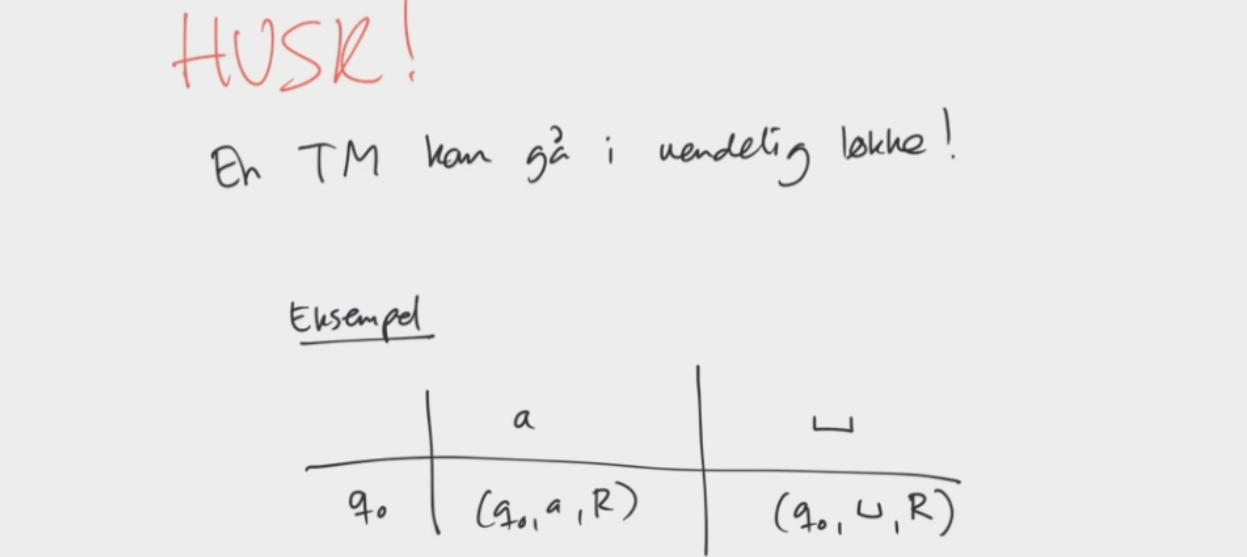 HUSK!
En TM kan gå i uendelig løkke!
Eksempel
a ⊔
q₀ (q₀, a, R) (q₀, ⊔, R)